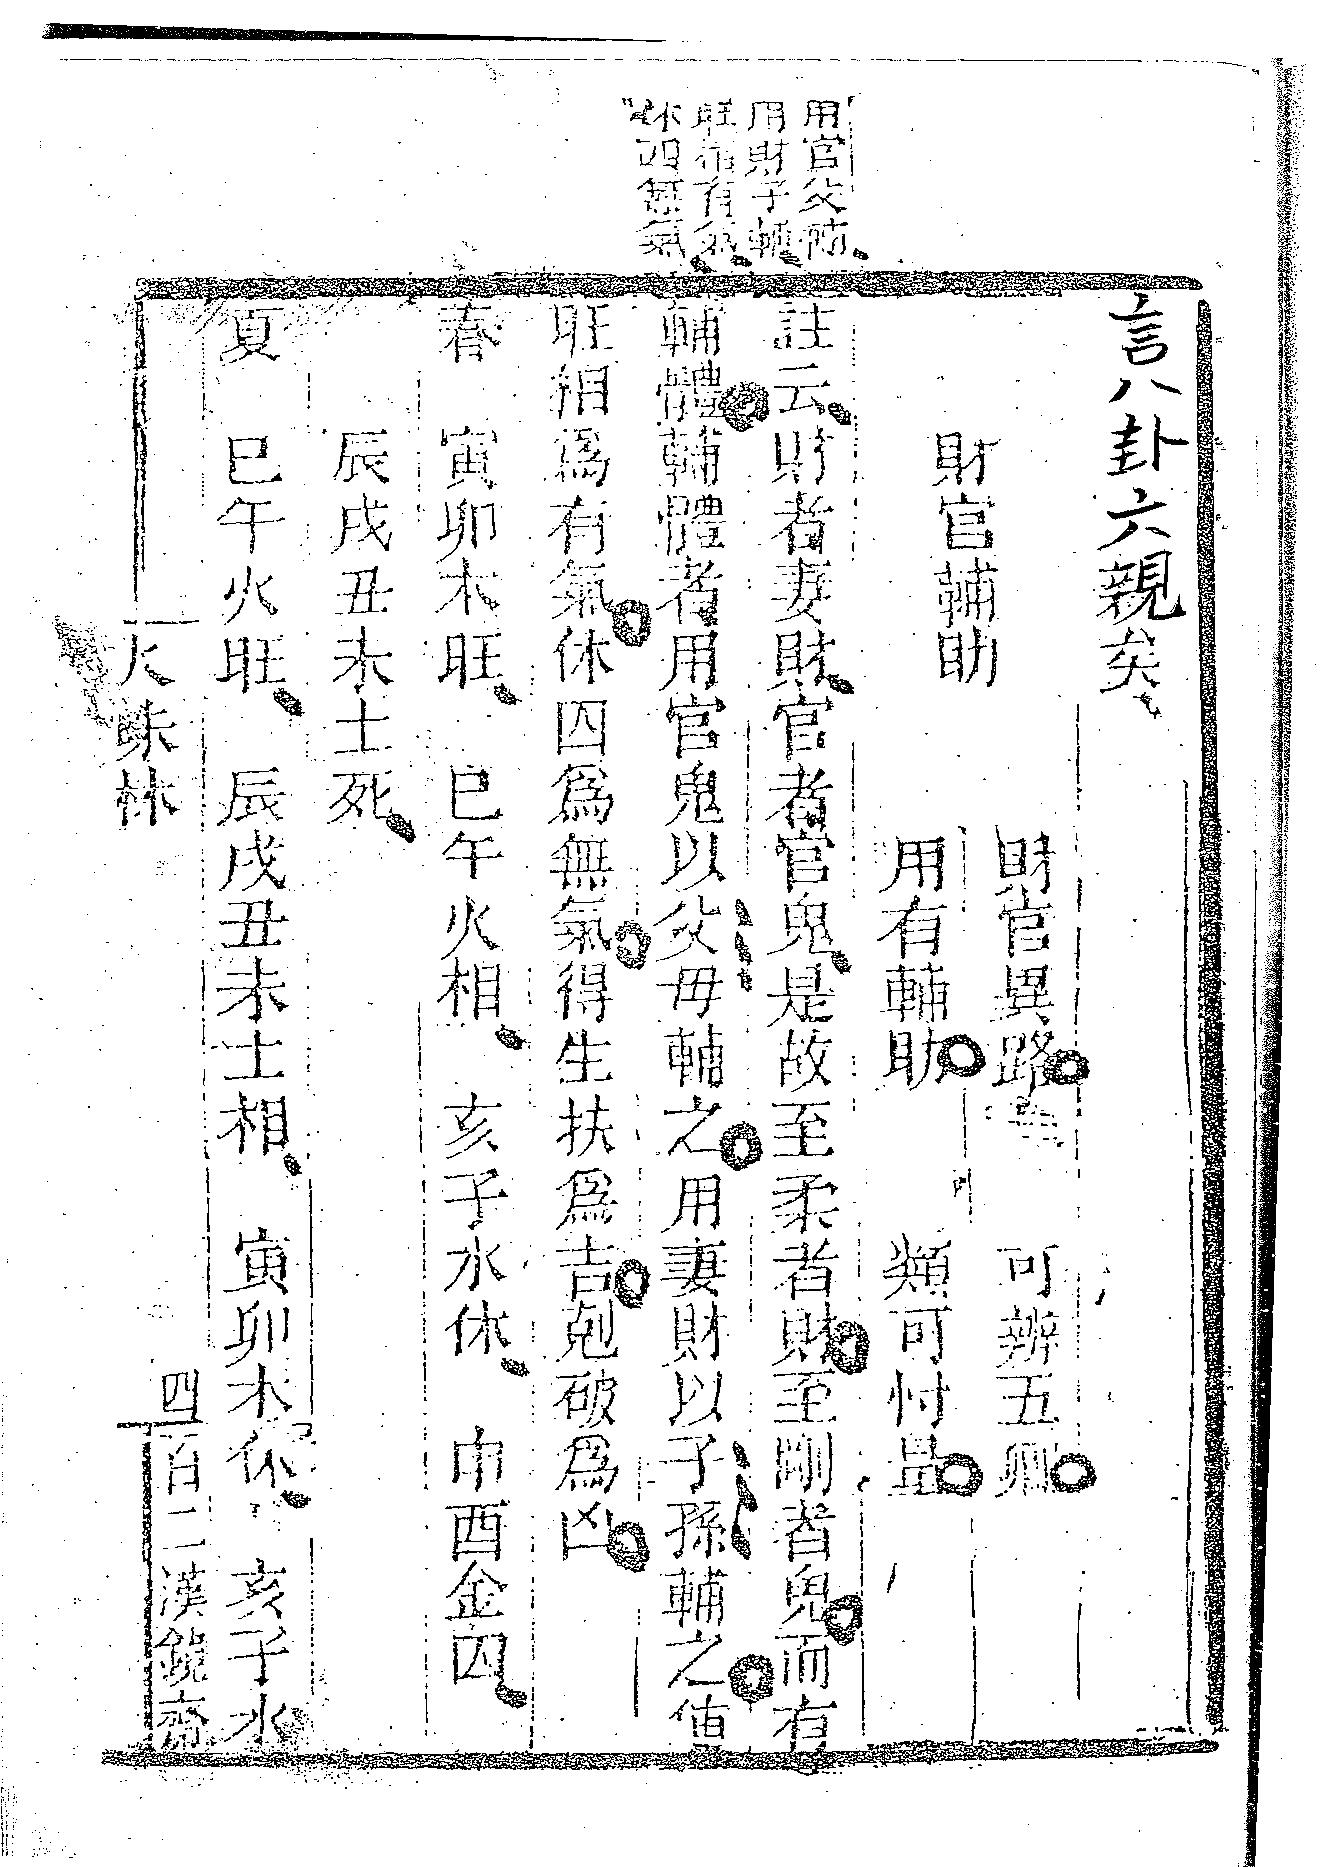 用官父補
用財子輔
旺相有氣
休囚無氣
言八卦六親矣
財官輔助
財官異路　可辨五鄉
用有輔助　類可忖量
註云財者妻財官者官鬼是故至柔者財至剛者鬼而有
輔體輔體者用官鬼以父母輔之用妻財以子孫輔之値
旺相爲有氣休囚爲無氣得生扶爲吉剋破爲凶
春　寅卯木旺　巳午火相　亥子水休　申酉金囚
辰戌丑未土死
夏　巳午火旺　辰戌丑未土相　寅卯木休　亥子水
火珠林
四百二漢鏡齋